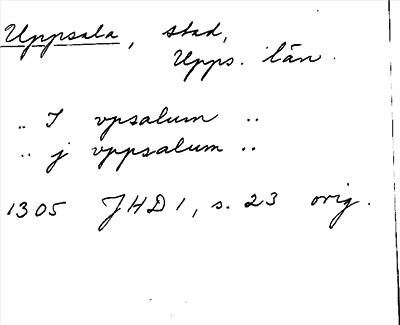 Uppsala, stad,
Upps. län.
.. I vpsalum ..
.. j vppsalum ..
1305 JHD 1, s. 23 orig.